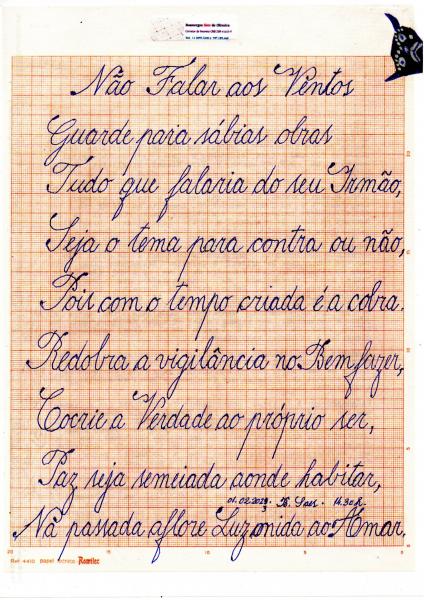 Não Falar aos Ventos
Guarde para sábias obras
Tudo que falaria do seu Irmão,
Seja o tema para contra ou não,
Pois com o tempo criada é a cobra.
Redobra a vigilância no Bem fazer,
Cocrie a Verdade ao próprio ser,
Paz seja semeiada aonde habitar,
01.02.2023 - 14:30h.
Na passada aflore Luz unida ao Amar.
20 15 10 5 0
Ref. 4410 papel técnico